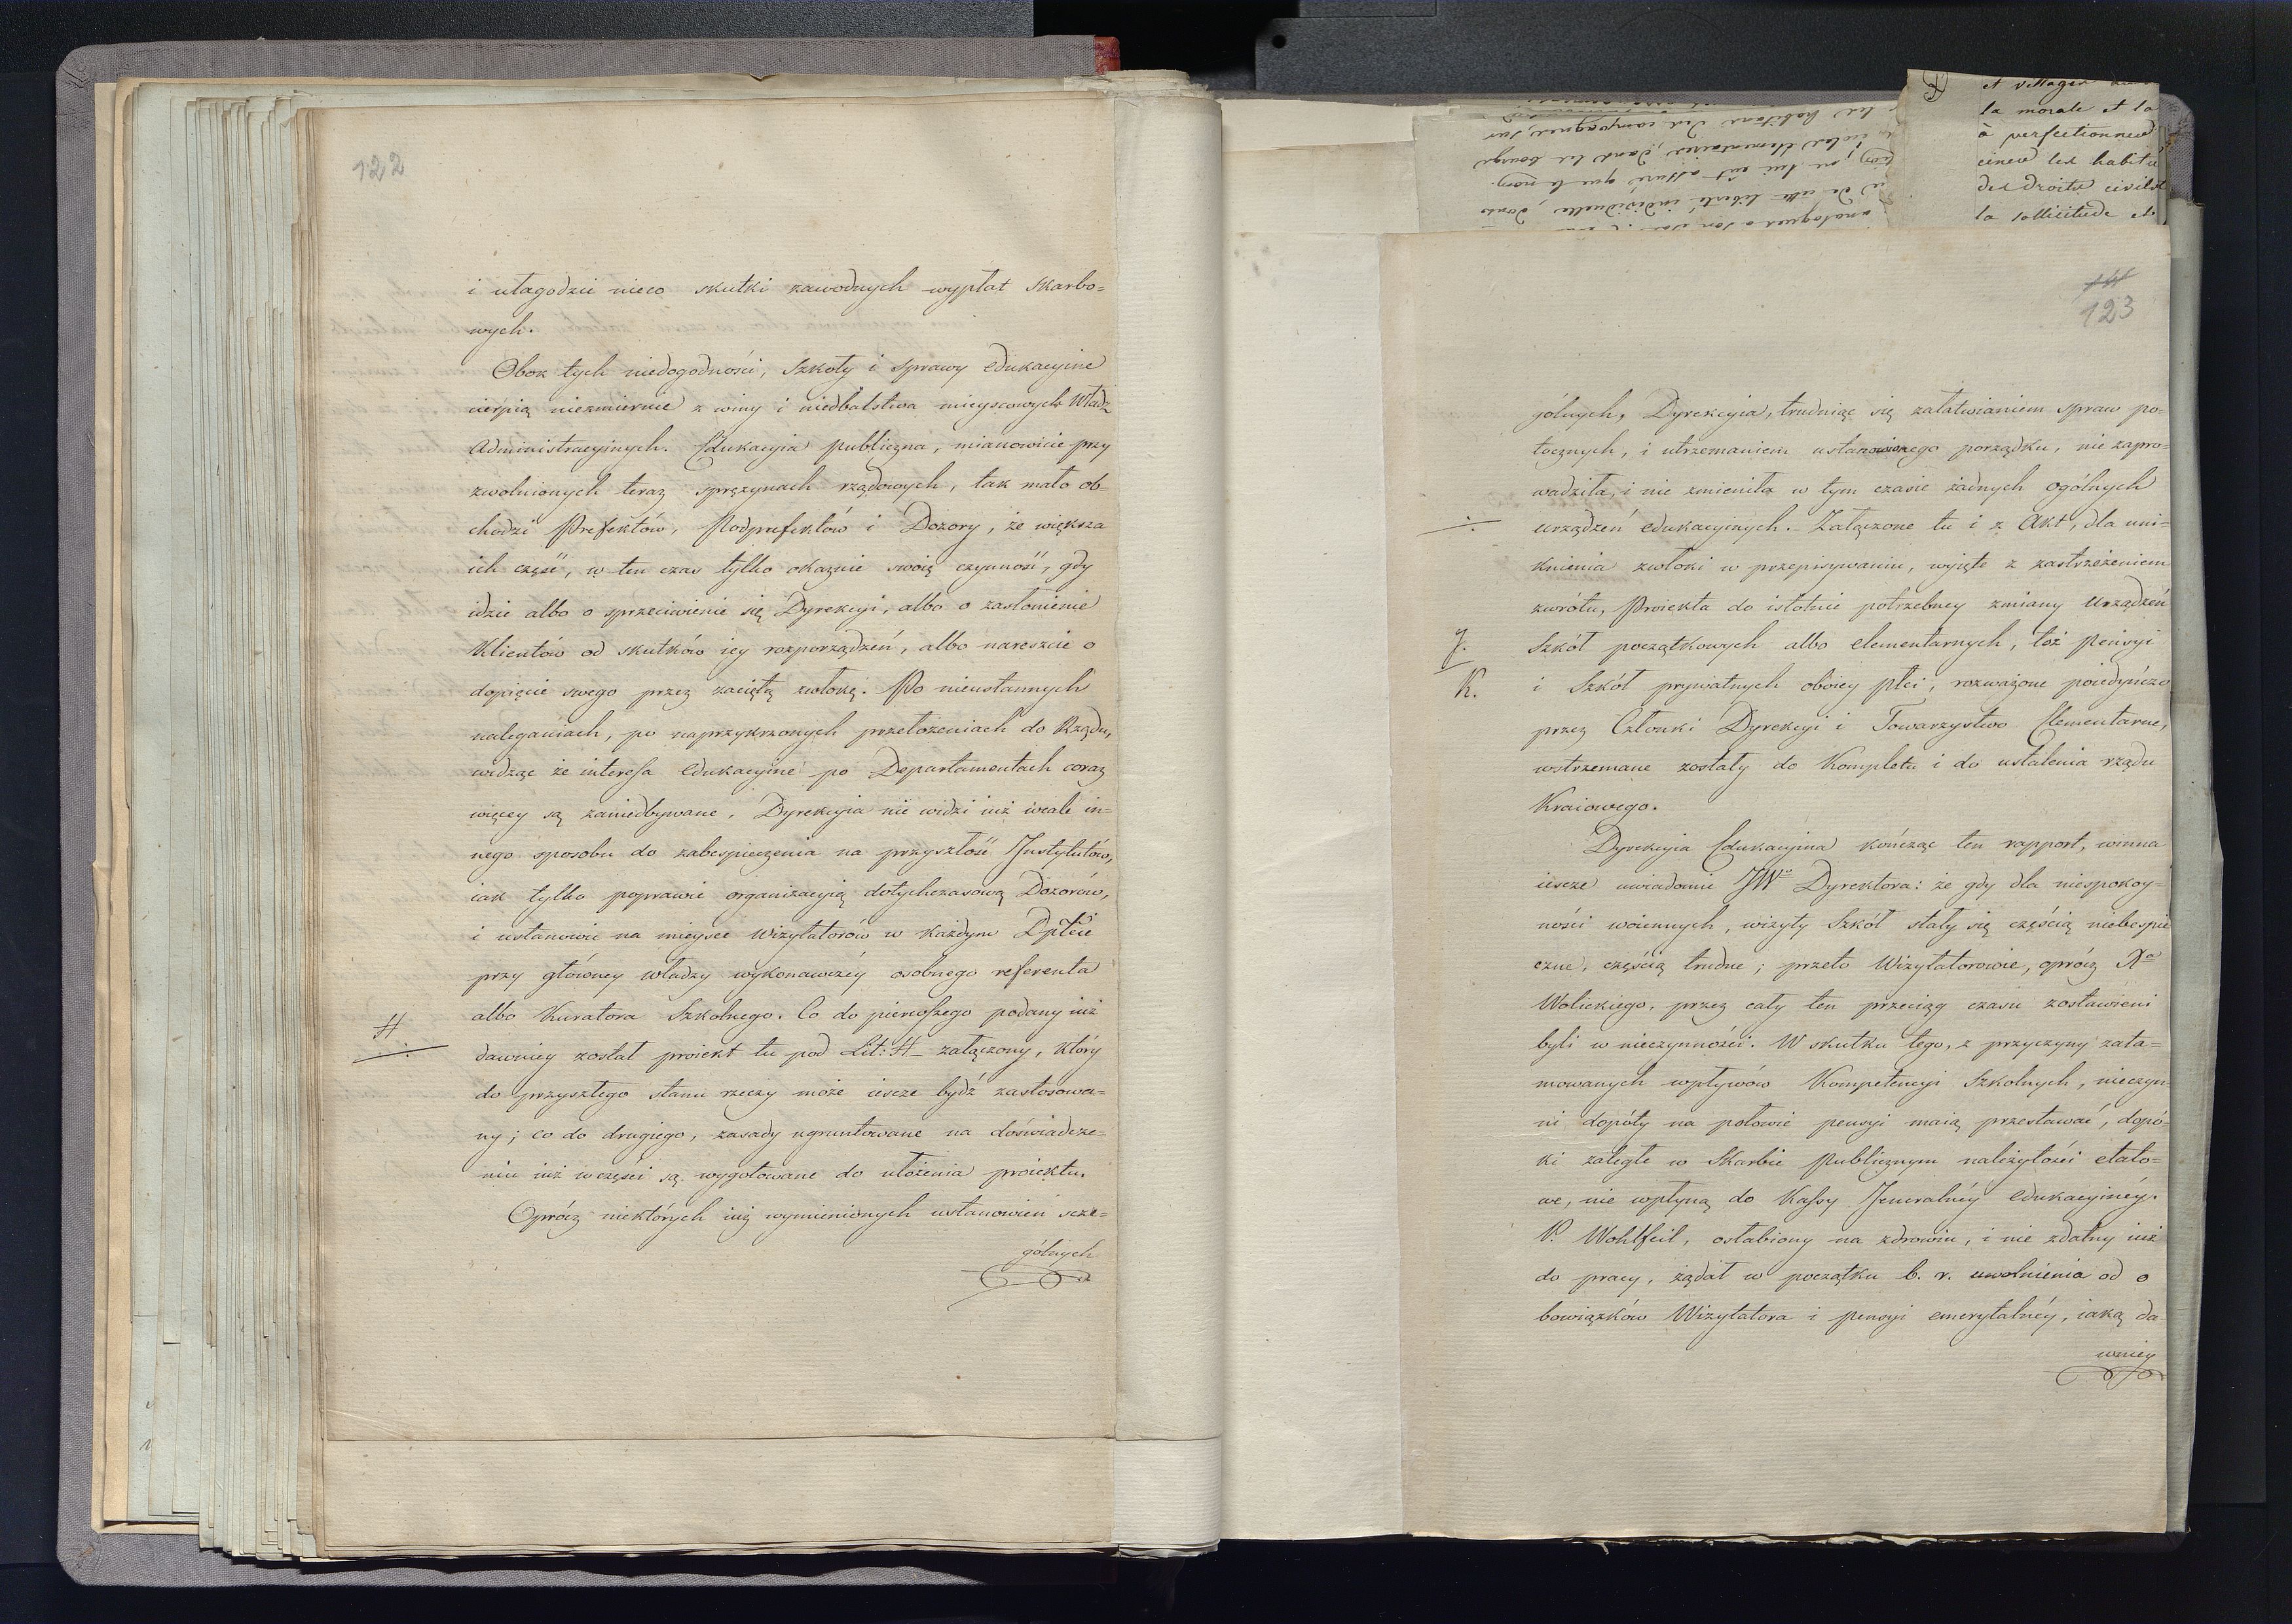 122
i ułagodzić nieco skutki zawodnych wypłat skarbo=
wych.
Obok tych niedogodności, Szkoły i sprawy edukacyine
cierpią niezmiernie z winy i niedbalstwa mieyscowych Władz
Administracyinych. Edukacyia publiczna, mianowicie przy
zwolnionych teraz sprężynach rządowych, tak mało ob=
chodzi Prefektów, Podprefektów i Dozory, że większa
ich część, w ten czas tylko okaznie swoię czynność, gdy
idzie albo o sprzeciwienie się Dyrekcyi, albo o zasłonienie
Klientów od skutków iey rozporządzeń, albo nareszcie o
dopięcie swego przez zaciętą zwłokę. Po nieustannych
naleganiach, po naprzykrzonych przełożeniach do Rządu,
widząc że interessa edukacyine po Departamentach coraz
więcey są zaniedbywane, Dyrekcyia nie widzi iuż wcale in=
nego sposobu do zabespieczenia na przyszłość Instytutów,
iak tylko poprawić organizacyią dotychczasową Dozorów,
i ustanowić na mieysce Wizytatorów w każdym Dptcie
przy główney władzy wykonawczéy osobnego referenta
albo Kuratora Szkolnego. Co do pierwszego podany iuż
H
dawniey został proiekt tu pod Lit: H załączony, który
do przyszłego stanu rzeczy może iescze bydź zastosowa=
ny; co do drugiego, zasady ugruntowane na doświadcze=
niu iuż w części są wygotowane do ułożenia proiektu.
Oprócz niektórych iuż wymienionych ustanowień scze=
gólnych
123
gólnych, Dyrekcyia, trudniąc się załatwianiem spraw po=
tocznych, i utrzemaniem ustanowionego porządku, nie zapro=
wadziła, i nie zmieniła w tym czasie żadnych ogólnych
urządzeń edukacyinych. Załączone tu i z Akt, dla uni=
knienia zwłoki w przepisywaniu, wyięte z zastrzeżeniem
zwrótu, Proiekta do istotnie potrzebney zmiany urządzeń
J.
Szkół początkowych albo elementarnych, toż pensyi
K.
i Szkół prywatnych oboiey płci, rozważone poiedyńczo
przez Członki Dyrekcyi i Towarzystwo Elementarne,
wstrzemane zostały do Kompletu i do ustalenia rządu
Kraiowego.
Dyrekcyia Edukacyina kończąc ten rapport, winna
iescze uwiadomić JWo Dyrektora: że gdy dla niespokoy=
ności woiennych, wizyty Szkół stały się częścią niebespie
czne, częścią trudne; przeto Wizytatorowie, oprócz Xa
Wolickiego, przez cały ten przeciąg czasu zostawieni
byli w nieczynności. W skutku tego, z przyczyny zata=
mowanych wpływów Kompetencyi Szkolnych, nieczyn=
ni dopóty na połowie pensyi maią przestawać, dopó=
ki zaległe w Skarbie Publicznym należytości etato=
we, nie wpłyną do Kassy Jeneralnéy edukacyinéy.
P. Wohlfeil, osłabiony na zdrowiu, i nie zdatny iuż
do pracy, żądał w początku b. r. uwolnienia od o
bowiązków Wizytatora i pensyi emerytalnéy, iaką da=
wniey
et villages
la morale et la
à perfectionner
des droits civils
la sollicitude et
les habitans des campagnes, sur
de cette liberté individuelle, dont